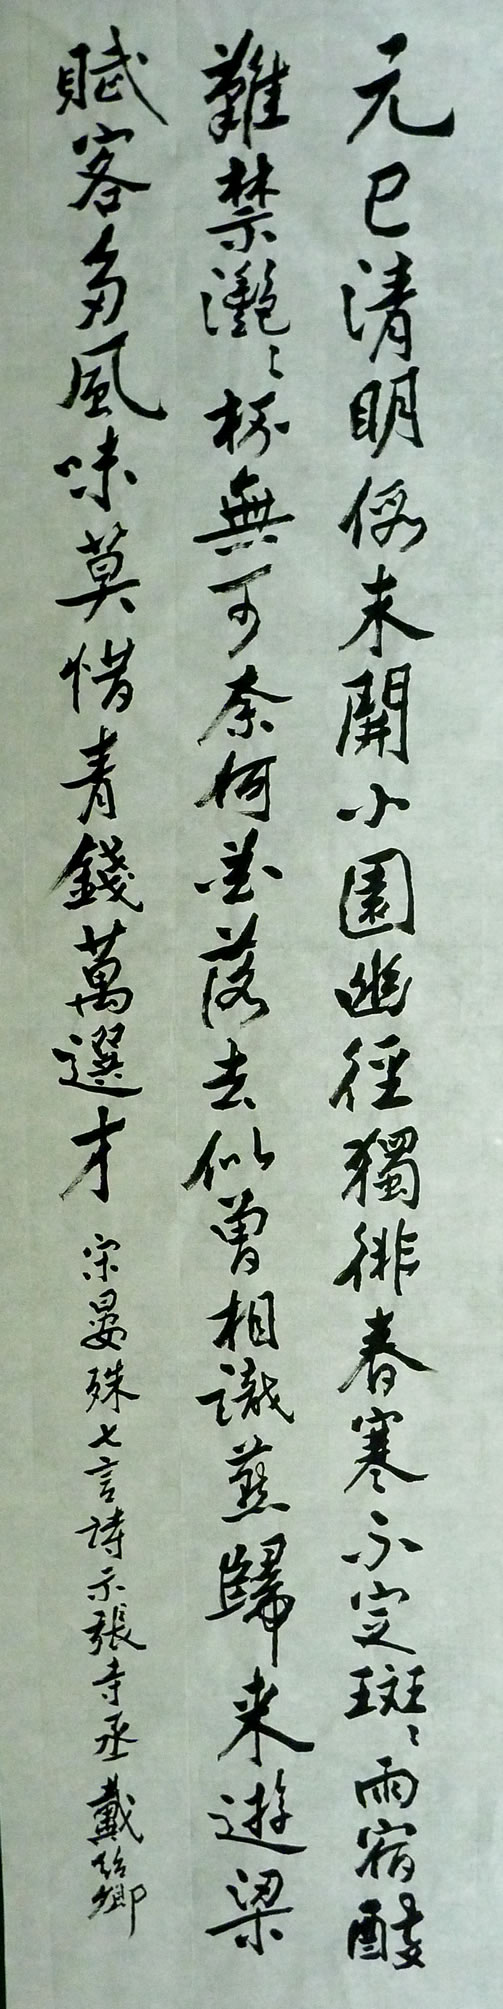 元巳清明假未開小園幽徑獨徘春寒不定斑〻雨宿醉
難禁灩〻杯無可奈何花落去似曾相識燕歸来遊梁
賦客多風味莫惜青錢萬選才
宋晏殊七言詩示張寺丞 戴紹卿